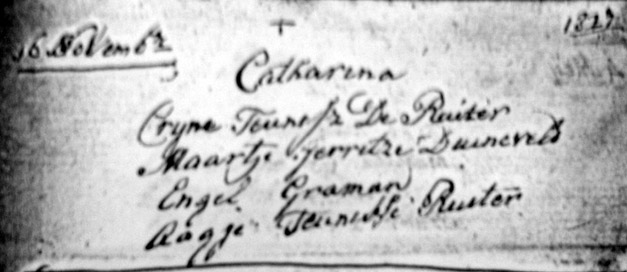 1827
16 Novembr
Catharina
Cryne Teunisz De Ruiter
Maartje Gerritze Duineveld
Engel Graman
Aagje Teunisse Ruiter